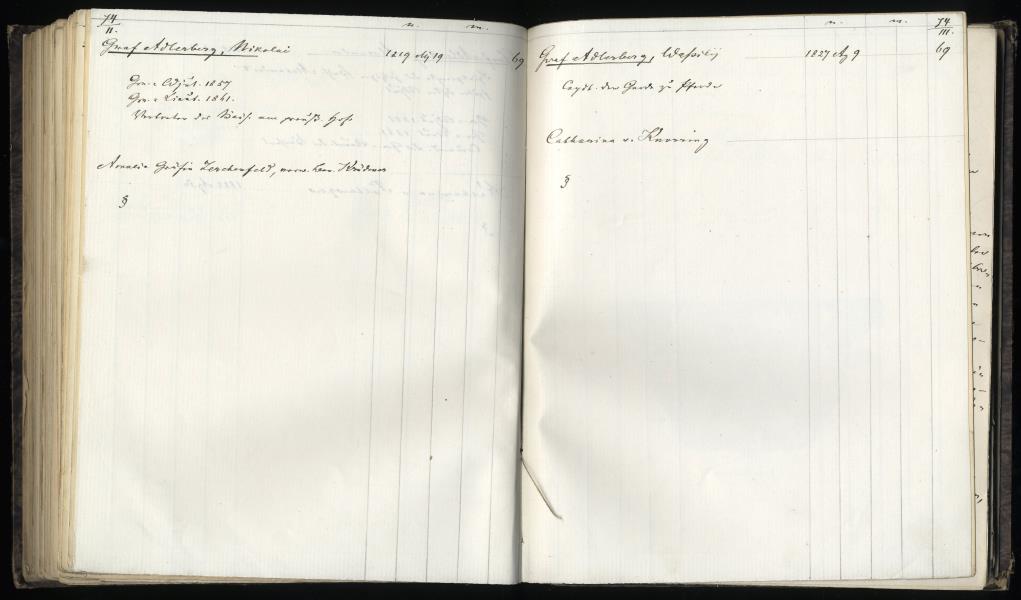 74
II.
n. m.
Graf Adlerberg, Nikolai 1819 Mj 19 69
Gen. Adjut. 1857
Gen. Lieut. 1861.
Vertreter des Kais. am preuß. Hofe
Amalia Gräfin Lerchenfeld, verw. Bar. Krüdener
§
n. m.
74
III.
Graf Adlerberg, Wassilij 1827 Ag 9 69
Capt. der Garde zu Pferde
Catharina v. Knorring
§